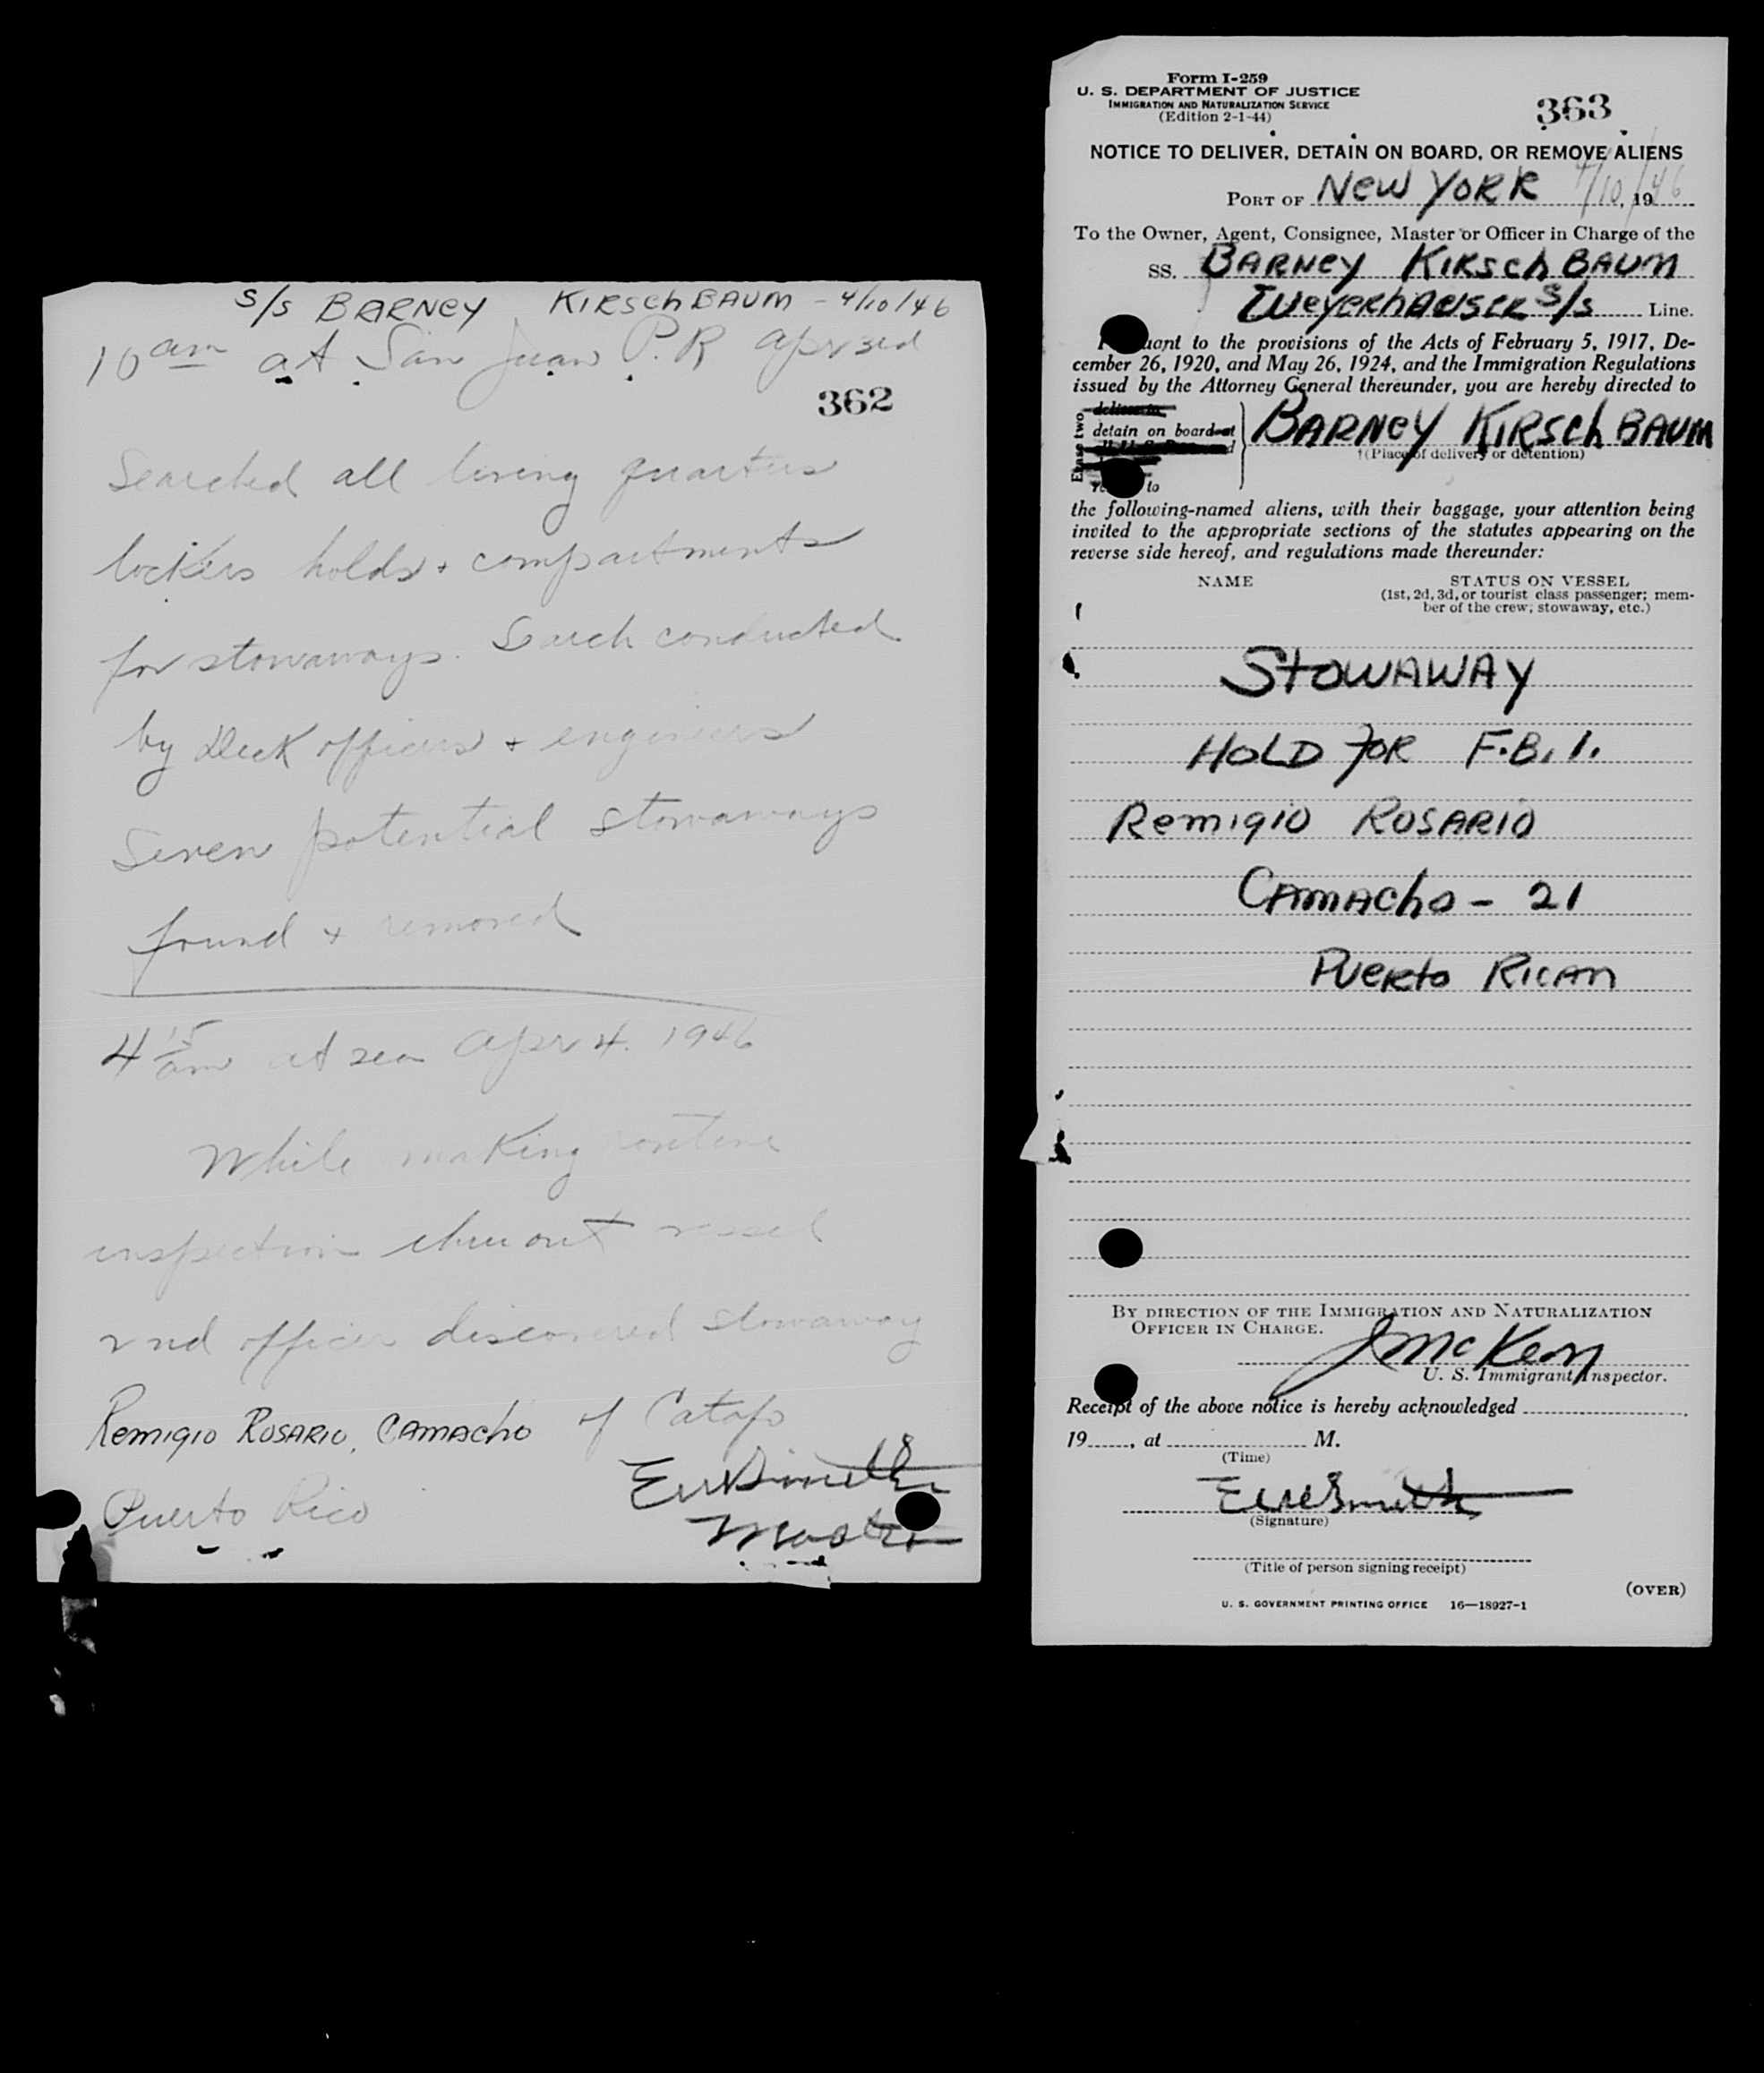 s/s BARNEY KIRSCHBAUM - 4/10/46
10 am at San Juan P.R Apr 3rd
362
Searched all living quarters
lockers holds + compartments
for stowaways. Search conducted
by Deck officers + engineers
Seven potential stowaways
found + removed
4 15 am at sea Apr 4. 1946
While making routine
inspection thruout vessel
2nd officer discovered stowaway
Remigio ROSARIO, CAMACHO of
Puerto Rico
EW Smith
Master
Form I-259
U. S. DEPARTMENT OF JUSTICE
IMMIGRATION AND NATURALIZATION SERVICE
(Edition 2-1-44)
363
NOTICE TO DELIVER, DETAIN ON BOARD, OR REMOVE ALIENS
PORT OF NEW YORK 4/10/, 1946
To the Owner, Agent, Consignee, Master or Officer in Charge of the
SS. BARNEY KIRSCHBAUM
Weyerhaeuser S/S Line.
to the provisions of the Acts of February 5, 1917, De-
cember 26, 1920, and May 26, 1924, and the Immigration Regulations
issued by the Attorney General thereunder, you are hereby directed to
Erase two
detain on board at
BARNEY KIRSCHBAUM
(Place of delivery or detention)
to
the following-named aliens, with their baggage, your attention being
invited to the appropriate sections of the statutes appearing on the
reverse side hereof, and regulations made thereunder:
NAME STATUS ON VESSEL
(1st, 2d, 3d, or tourist class passenger; mem-
ber of the crew; stowaway, etc.)
STOWAWAY
HOLD FOR F.B.I.
Remigio ROSARIO
CAMACHO - 21
PUERTO RICAN
BY DIRECTION OF THE IMMIGRATION AND NATURALIZATION
OFFICER IN CHARGE.
J McKeon
U. S. Immigrant Inspector.
Receipt of the above notice is hereby acknowledged
19......, at M.
(Time)
EW Smith
(Signature)
(Title of person signing receipt)
(OVER)
U. S. GOVERNMENT PRINTING OFFICE 16—18927-1